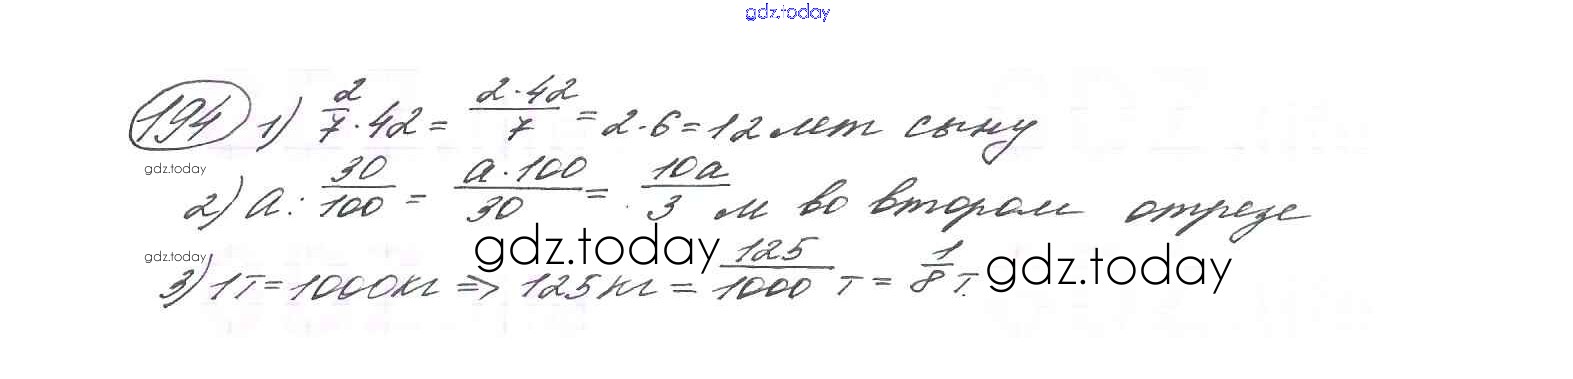 gdz.today
194 1) 2/7 · 42 = 2·42/7 = 2·6 = 12 лет сыну
gdz.today
2) a : 30/100 = a·100/30 = 10a/3 м во втором отрезе
gdz.today
gdz.today
3) 1т = 1000кг => 125кг = 125/1000 т = 1/8 т.
gdz.today